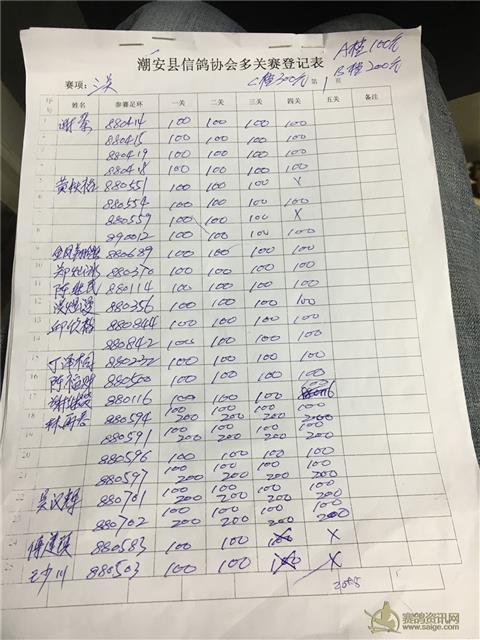 潮安县信鸽协会多关赛登记表
A栏100元
B栏200元
C栏300元
赛项: 第1页
序号 姓名 参赛足环 一关 二关 三关 四关 五关 备注
1 谢荣 880414 100 100 100 100
2 880415 100 100 100 100
3 880419 100 100 100 100
4 880418 100 100 100 100
5 880551 100 100 100 X
6 880554 100 100 100 100
7 880559 100 100 100 X
8 890012 100 100 100 100
9 880689 100 100 100 100
10 880370 100 100 100 100
11 880114 100 100 100 100
12 880356 100 100 100 100
13 880844 100 100 100 100
14 880842 100 100 100 100
15 880232 100 100 100 100
16 880500 100 100 100 100
17 880116 100 100 100 100
18 880594 100 200 100 200 100 200 100 200
19 880591 100 200 100 200 100 200 100 200
20 880596 100 100 100 100
21 880597 100 200 100 200 100 200 100 200
22 880701 100 200 100 200 100 200 100 200
23 880702 100 200 100 200 100 200 100 200
24 880583 100 100 X
25 880503 100 100 X
赛鸽资讯网
www.saige.com